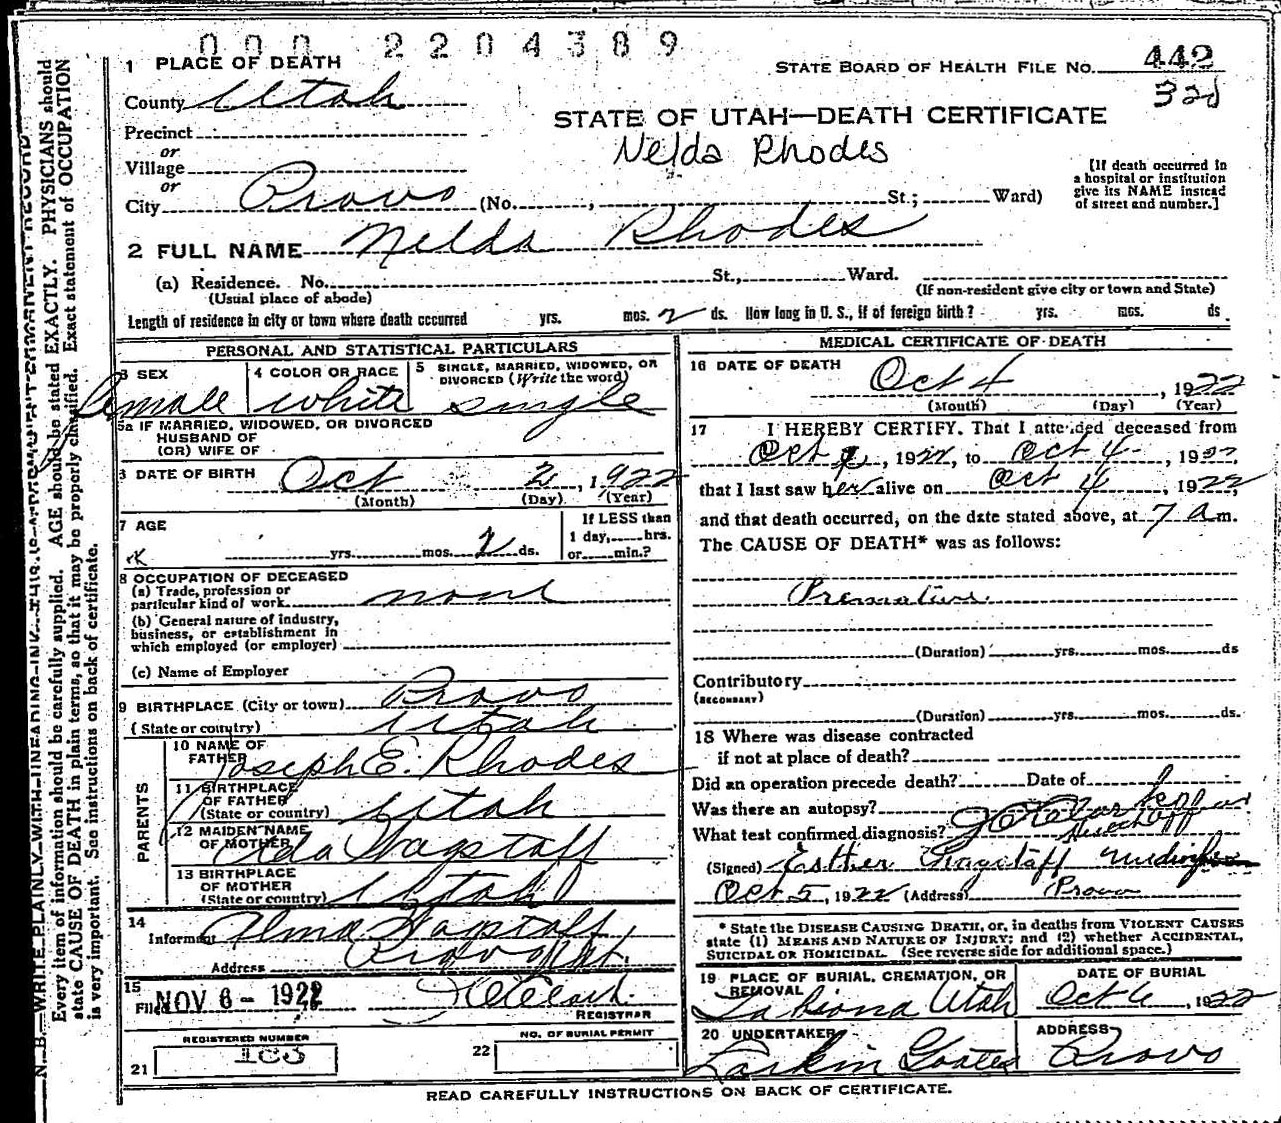 000 2204389
1 PLACE OF DEATH
STATE BOARD OF HEALTH FILE NO. 442
County Utah
STATE OF UTAH—DEATH CERTIFICATE
Precinct
Nelda Rhodes
or
Village
or
City Provo (No. , St.; Ward)
[If death occurred in
a hospital or institution
give its NAME instead
of street and number.]
2 FULL NAME Nelda Rhodes
(a) Residence. No. St., Ward.
(Usual place of abode)
(If non-resident give city or town and State)
Length of residence in city or town where death occurred yrs. mos. 2 ds. How long in U. S., if of foreign birth? yrs. mos. ds.
PERSONAL AND STATISTICAL PARTICULARS
3 SEX
Female
4 COLOR OR RACE
white
5 SINGLE, MARRIED, WIDOWED, OR
DIVORCED (Write the word)
single
5a IF MARRIED, WIDOWED, OR DIVORCED
HUSBAND OF
(OR) WIFE OF
6 DATE OF BIRTH Oct 2, 1922
(Month) (Day) (Year)
7 AGE
yrs. mos. 2 ds.
If LESS than
1 day, hrs.
or min.?
8 OCCUPATION OF DECEASED
(a) Trade, profession or
particular kind of work none
(b) General nature of industry,
business, or establishment in
which employed (or employer)
(c) Name of Employer
9 BIRTHPLACE (City or town) Provo
(State or country) Utah
PARENTS
10 NAME OF
FATHER Joseph E. Rhodes
11 BIRTHPLACE
OF FATHER
(State or country) Utah
12 MAIDEN NAME
OF MOTHER Ada Wagstaff
13 BIRTHPLACE
OF MOTHER
(State or country) Utah
14
Informant Alma Wagstaff
Address Provo Ut.
15
Filed NOV 6 - 1922
REGISTRAR
REGISTERED NUMBER
21 183
NO. OF BURIAL PERMIT
22
MEDICAL CERTIFICATE OF DEATH
16 DATE OF DEATH Oct 4, 1922
(Month) (Day) (Year)
17 I HEREBY CERTIFY, That I attended deceased from
Oct 2, 1922, to Oct 4, 1922,
that I last saw her alive on Oct 4, 1922,
and that death occurred, on the date stated above, at 7 a m.
The CAUSE OF DEATH* was as follows:
Premature
(Duration) yrs. mos. ds
Contributory
(SECONDARY)
(Duration) yrs. mos. ds.
18 Where was disease contracted
if not at place of death?
Did an operation precede death? Date of
Was there an autopsy?
What test confirmed diagnosis?
(Signed) Esther Wagstaff midwife
Oct 5, 1922 (Address) Provo
* State the DISEASE CAUSING DEATH, or, in deaths from VIOLENT CAUSES
state (1) MEANS AND NATURE OF INJURY; and (2) whether ACCIDENTAL,
SUICIDAL OR HOMICIDAL. (See reverse side for additional space.)
19 PLACE OF BURIAL, CREMATION, OR
REMOVAL
Utah
DATE OF BURIAL
Oct 6, 1922
20 UNDERTAKER
Larkin
ADDRESS
Provo
READ CAREFULLY INSTRUCTIONS ON BACK OF CERTIFICATE.
N. B.—WRITE PLAINLY WITH UNFADING INK—THIS IS A PERMANENT RECORD.
Every item of information should be carefully supplied. AGE should be stated EXACTLY. PHYSICIANS should
state CAUSE OF DEATH in plain terms, so that it may be properly classified. Exact statement of OCCUPATION
is very important. See instructions on back of certificate.